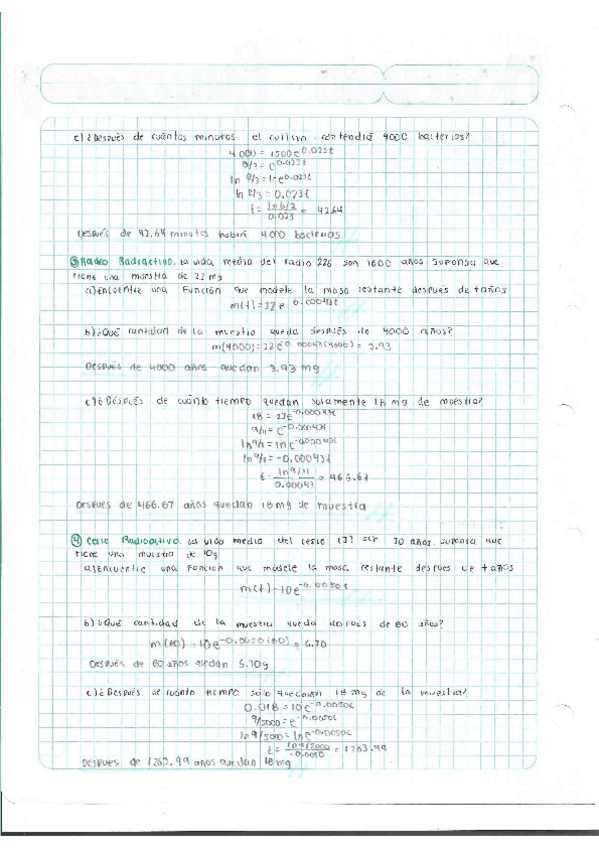 c) ¿Después de cuántos minutos el cultivo contendrá 4000 bacterias?
4000 = 1500e^0.023t
8/3 = e^0.023t
ln 8/3 = lne^0.023t
ln 8/3 = 0.023t
t = ln 8/3 / 0.023 = 42.64
Después de 42.64 minutos habrá 4000 bacterias
③ Radio Radiactivo. La vida media del radio 226 son 1600 años suponga que
tiene una muestra de 22 mg
a) Encuentre una Función que modele la masa restante después de t años
m(t) = 22e^-0.00043t
b) ¿Qué cantidad de la muestra queda después de 4000 años?
m(4000) = 22e^-0.00043(4000) = 3.93
Después de 4000 años quedan 3.93 mg
c) ¿Después de cuánto tiempo quedan solamente 18 mg de muestra?
18 = 22e^-0.00043t
9/11 = e^-0.00043t
ln 9/11 = lne^-0.00043t
ln 9/11 = -0.00043t
t = ln 9/11 / 0.00043 = 466.67
Después de 466.67 años quedan 18 mg de muestra
④ Cesio Radioactivo. La vida media del cesio 137 ser 30 años. suponga que
tiene una muestra de 10g
a) Encuentre una Función que modele la masa restante después de t años
m(t) = 10e^-0.0050t
b) ¿Qué cantidad de la muestra queda después de 80 años?
m(80) = 10e^-0.0050(80) = 6.70
Después de 80 años quedan 6.70g
c) ¿Después de cuánto tiempo sólo quedarán 18 mg de la muestra?
0.018 = 10e^-0.0050t
9/5000 = e^-0.0050t
ln 9/5000 = lne^-0.0050t
t = ln 9/5000 / -0.0050 = 1263.99
Después de 1263.99 años quedan 18 mg